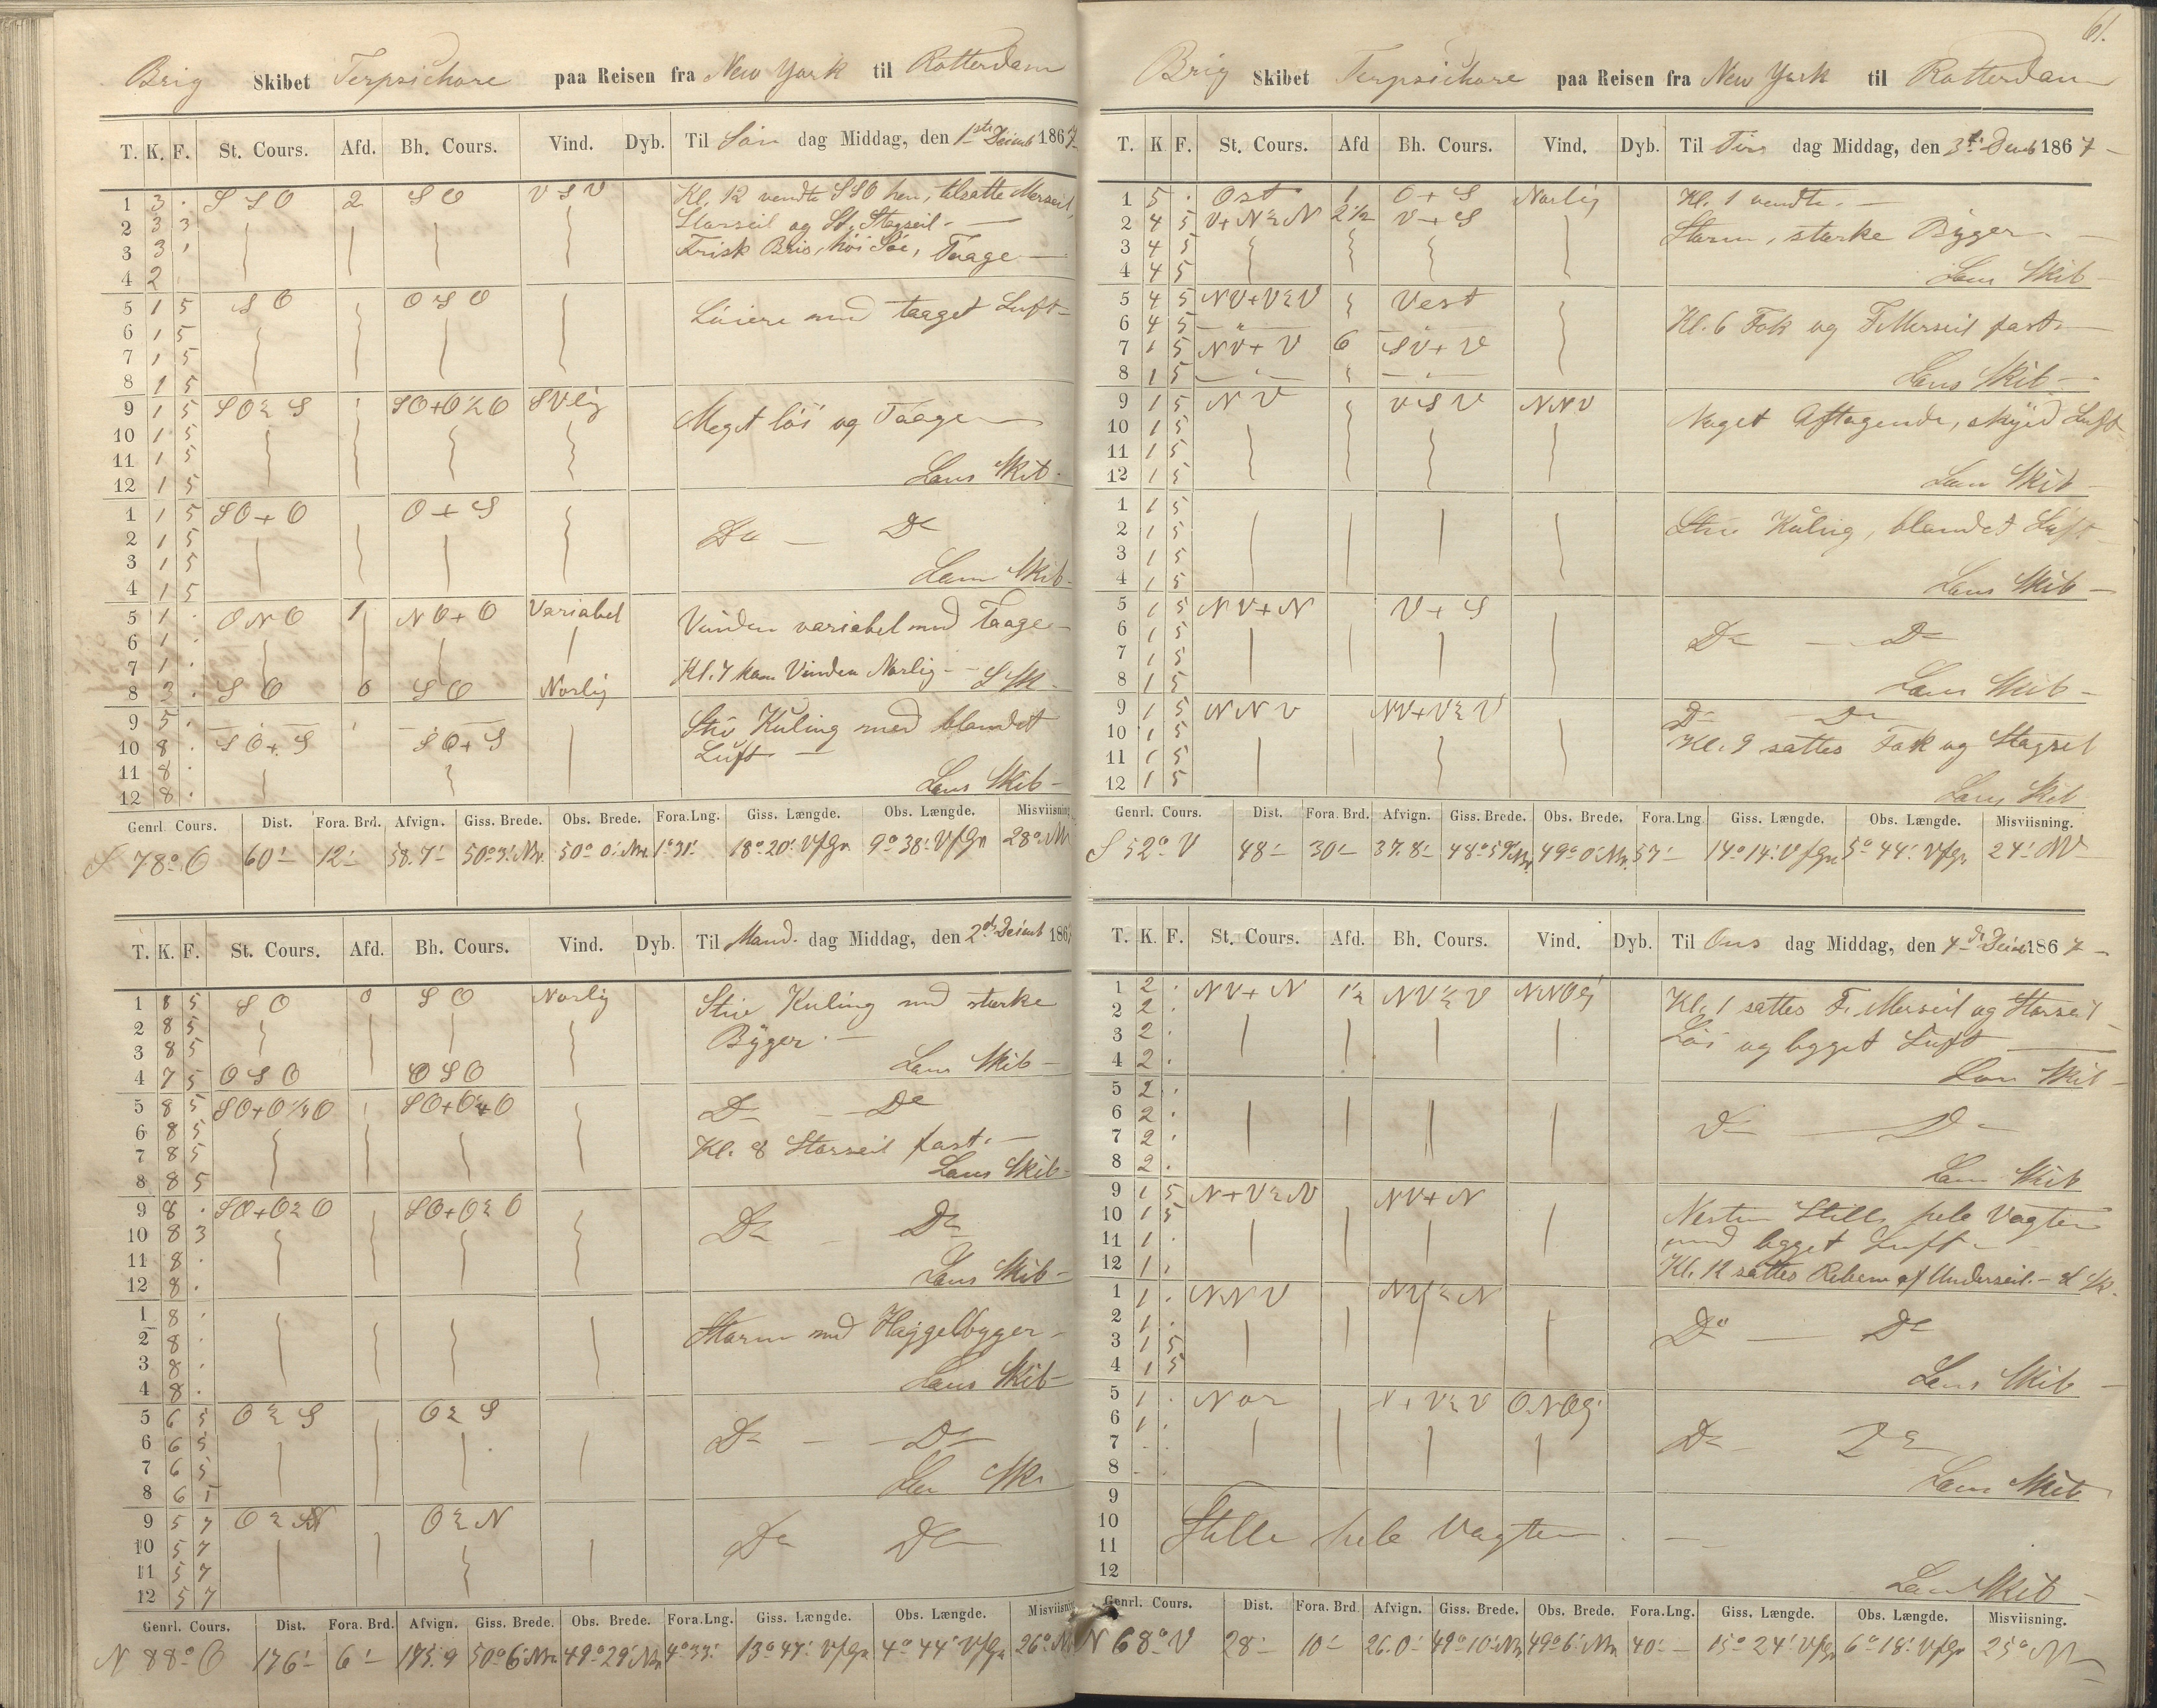 Brig Skibet Terpsichore paa Reisen fra New York til Rotterdam
T. K. F. St. Cours. Afd. Bh. Cours. Vind. Dyb. Til Søn dag Middag, den 1ste Decemb 1867
1 3 . S S O 2 S O V S V Kl. 12 vendte SSO hen, tilsatte Merseil,
2 3 3 Storseil og St. Stagseil -
3 3 . Frisk Bris, höi Söe, Taage -
4 2 .
5 1 5 S O O S O Löiere med taaget Luft -
6 1 5
7 1 5
8 1 5
9 1 5 SO ½ S SO+O ½ O SVlig Meget löi og Taage
10 1 5
11 1 5
12 1 5 Lens Skib -
1 1 5 SO + O O + S
2 1 5 Do - Do
3 1 5
4 1 5 Lens Skib -
5 1 . O N O 1 N O + O Variabel Vinden variabel med Taage -
6 1 .
7 1 . Kl. 7 kom Vinden Norlig - L Sk -
8 3 . S O 0 S O Norlig
9 5 . Stiv Kuling med blandet
10 8 . S O + S S O + S Luft -
11 8 .
12 8 . Lens Skib -
Genrl. Cours. Dist. Fora. Brd. Afvign. Giss. Brede. Obs. Brede. Fora.Lng. Giss. Længde. Obs. Længde. Misviisning
S 78° O 60' 12' 58.7' 50° 3' Nr. 50° 0' Nr. 1° 31' 18° 20' VfGr 9° 38' VfGr 28°
T. K. F. St. Cours. Afd. Bh. Cours. Vind. Dyb. Til Mand. dag Middag, den 2d Decemb 1867
1 8 5 S O 0 S O Norlig Stiv Kuling med stærke
2 8 5 Bÿger. -
3 8 5
4 7 5 O S O O S O Lens Skib -
5 8 5 SO+O ½ O SO+O O Do - Do
6 8 5
7 8 5 Kl. 8 Storseil fast. -
8 8 5 Lens Skib -
9 8 . SO+O ½ O SO+O ½ O
10 8 3 Do - Do
11 8 .
12 8 . Lens Skib -
1 8 .
2 8 . Storm med Haggelbyger -
3 8 .
4 8 . Lens Skib -
5 6 5 O ½ S O ½ S
6 6 5 Do - Do
7 6 5
8 6 5
9 5 7 O ½ N O ½ N
10 5 7 Do Do
11 5 7
12 5 7
Genrl. Cours. Dist. Fora. Brd. Afvign. Giss. Brede. Obs. Brede. Fora.Lng. Giss. Længde. Obs. Længde. Misviisning
N 88° O 176' 6' 175.9 50° 6' Nr. 49° 29' Nr. 4° 33' 13° 47' VfGr 4° 44' VfGr 26°
61.
Brig Skibet Terpsichore paa Reisen fra New York til Rotterdam
T. K F. St. Cours. Afd Bh. Cours. Vind. Dyb. Til Tirs dag Middag, den 3d Decb 1867 -
1 5 . Ost 1 O + S Norlig Kl. 1 vendte. -
2 4 5 V+N ½ N 2½ V + S Storm, stærke Bÿger -
3 4 5
4 4 5 Lens Skib -
5 4 5 NV+V ½ V Vest
6 4 5 - " - - " - Kl. 6 Fok og F. Merseil fast -
7 1 5 NV + V 6 SV + V
8 1 5 - " - - " - Lens Skib -
9 1 5 N V V S V N N V Noget Aftagende, skyed Luft -
10 1 5
11 1 5
12 1 5 Lens Skib -
1 1 5
2 1 5 Stiv Kuling, blandet Luft -
3 1 5
4 1 5 Lens Skib -
5 1 5 N V + N V + S
6 1 5 Do - Do
7 1 5
8 1 5 Lens Skib -
9 1 5 N N V NV+V ½ V Do Do
10 1 5 Kl. 9 sattes Fok og Stagseil
11 1 5
12 1 5 Lens Skib
Genrl. Cours. Dist. Fora. Brd. Afvign. Giss. Brede. Obs. Brede. Fora.Lng Giss. Længde. Obs. Længde. Misviisning.
S 52° V 48' 30' 37.8' 49° 0' Nr. 57' 14° 14' VfGr 5° 44' VfGr 24°
T. K. F. St. Cours. Afd. Bh. Cours. Vind. Dyb. Til Ons dag Middag, den 4de Decb 1867 -
1 2 . N V + N 1½ N V ½ V N N O lig Kl. 1 sattes F. Merseil og Storseil
2 2 . Löi og bÿget Luft -
3 2 .
4 2 . Lens Skib -
5 2 .
6 2 . Do - Do
7 2 .
8 2 . Lens Skib
9 1 5 N+V ½ N NV+N Nesten Stille hele Vagten
10 1 5 med bÿget Luft -
11 1 .
12 1 . Kl. 12 sattes Rebene af Underseil. - L Sk.
1 1 . N N V N V ½ N
2 1 . Do - Do
3 1 5
4 1 5 Lens Skib -
5 1 . Nor N + V ½ V O N O lig
6 1 . Do - Do
7 . .
8 . . Lens Skib
9
10 Stille hele Vagten -
11
12 Lens Skib -
Genrl. Cours. Dist. Fora. Brd. Afvign. Giss. Brede. Obs. Brede. Fora.Lng. Giss. Længde. Obs. Længde. Misviisning.
N 68° V 28' 10' 26.0' 49° 10' Nr 49° 6' Nr 40' 15° 24' VfGr 6° 18' VfGr 25°